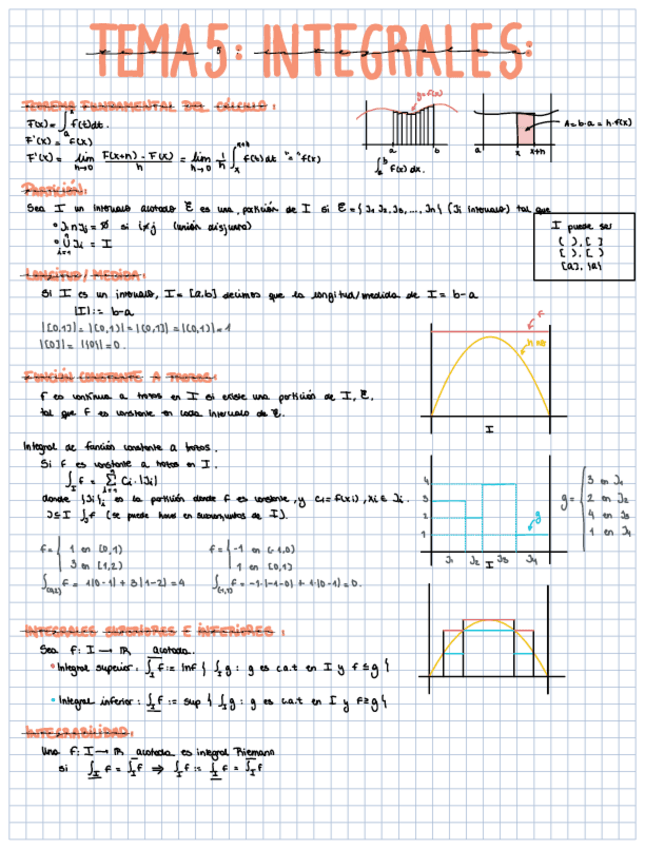 TEMA 5: INTEGRALES:
TEOREMA FUNDAMENTAL DEL CÁLCULO:
F(x) = ∫ₐˣ f(t)dt.
F'(x) = f(x)
F'(x) = lim h→0 (F(x+h) - F(x))/h = lim h→0 1/h ∫ₓˣ⁺ʰ f(t)dt "=" f(x)
y=f(x)
a b
∫ₐᵇ f(x) dx.
a x x+h
A = b·a = h·f(x)
PARTICIÓN:
Sea I un intervalo acotado ℰ es una partición de I si ℰ = { J₁, J₂, J₃, ..., Jn} (Ji intervalo) tal que
• Ji ∩ Jj = ∅ si i≠j (unión disjunta)
• ⋃ᵢ₌₁ⁿ Ji = I
I puede ser
( ), [ ]
[ ), ( ]
[a], {a}
LONGITUD / MEDIDA:
Si I es un intervalo, I = [a,b] decimos que la longitud/medida de I = b-a
|I| := b-a
|[0,1]| = |[0,1)| = |(0,1]| = |(0,1)| = 1
|[0]| = |{0}| = 0.
FUNCIÓN CONSTANTE A TROZOS:
f es continua a trozos en I si existe una partición de I, ℰ,
tal que f es constante en cada intervalo de ℰ.
f
I
Integral de función constante a trozos.
Si f es constante a trozos en I.
∫_I f = Σᵢ₌₁ⁿ Ci·|Ji|
donde {Ji}i es la partición donde f es constante, y ci = f(xi), xi ∈ Ji.
J⊆I ∫_J f (se puede hacer en subconjuntos de I).
4
3
2
1
g
J₁ J₂ J₃ J₄
I
g = { 3 en J₁
2 en J₂
4 en J₃
1 en J₄
f = { 1 en [0,1)
3 en [1,2)
∫_[0,2) f = 1·|0-1| + 3·|1-2| = 4
f = { -1 en (-1,0)
1 en [0,1)
∫_(-1,1) f = -1·|-1-0| + 1·|0-1| = 0.
INTEGRALES SUPERIORES E INFERIORES:
Sea f: I → ℝ acotada.
• Integral superior: ∫̅_I f := inf { ∫_I g : g es c.a.t en I y f ≤ g }
• Integral inferior: ∫̲_I f := sup { ∫_I g : g es c.a.t en I y f ≥ g }
INTEGRABILIDAD:
Una f: I → ℝ acotada es integral Riemann
si ∫̲_I f = ∫̅_I f ⇒ ∫_I f := ∫̲_I f = ∫̅_I f